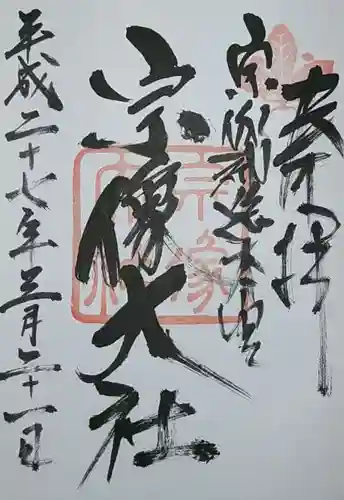 奉拝
宗像
宗像大社
平成二十七年三月二十一日